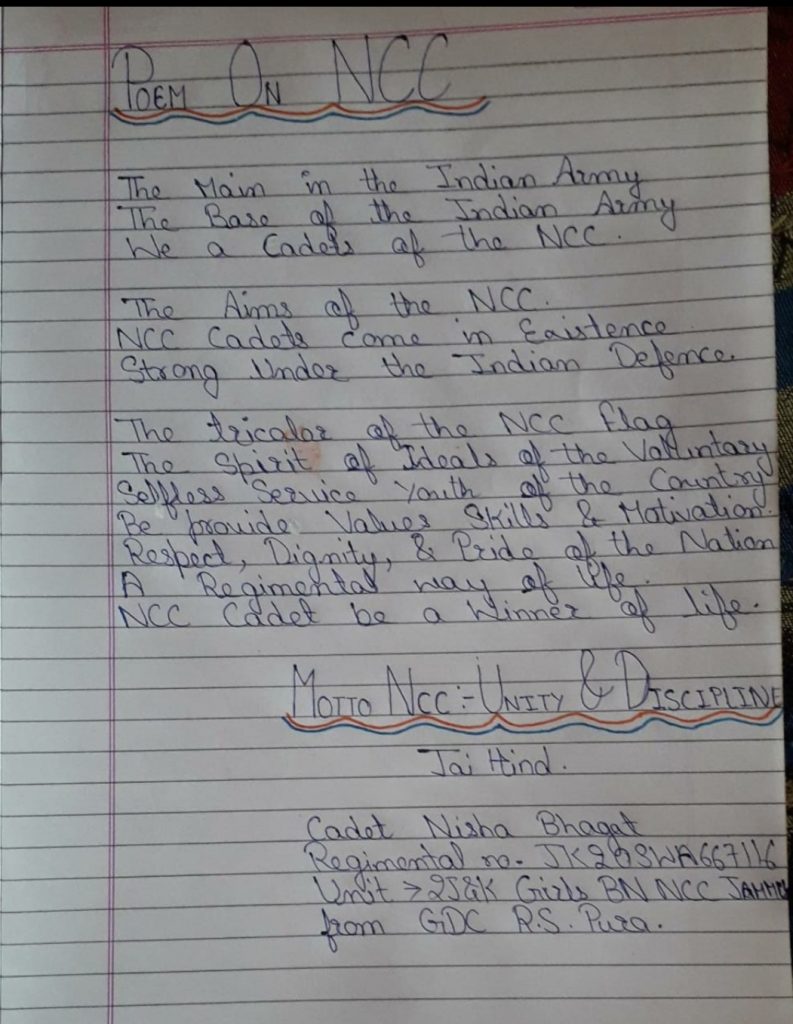 POEM ON NCC
The Main in the Indian Army
The Base of the Indian Army
We a Cadets of the NCC.
The Aims of the NCC.
NCC Cadets come in Existence
Strong Under the Indian Defence.
The tricolor of the NCC flag
The Spirit of Ideals of the Voluntary
Selfless Service Youth of the Country
Be provide Values Skills & Motivation.
Respect, Dignity, & Pride of the Nation
A Regimental way of life.
NCC Cadet be a Winner of life.
MOTTO NCC:- UNITY & DISCIPLINE
Jai Hind.
Cadet Nisha Bhagat
Regimental no.
Unit > 2J&K Girls BN NCC JAMMU
from GDC R.S. Pura.